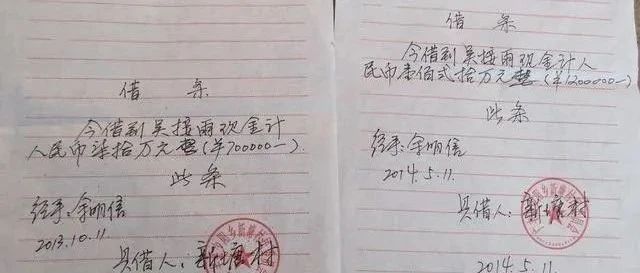 借条
今借到吴接雨现金计
人民币柒拾万元整(￥700000一).
此条
经手:余明信
2013.10.11
具借人:新塘村
借条
今借到吴接雨现金计人
民币壹佰式拾万元整(￥1200000一)
此条
经手:余明信
2014.5.11.
具借人:新塘村
2014.5.11.